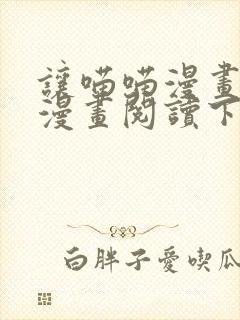 讓喵喵漫畫
漫畫閱讀下
白胖子愛喫瓜